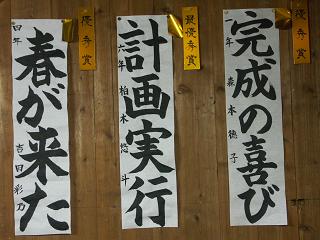 優秀賞
完成の喜び
年 森本徳子
最優秀賞
計画実行
六年 柏木悠斗
優秀賞
春が来た
四年 吉田彩乃